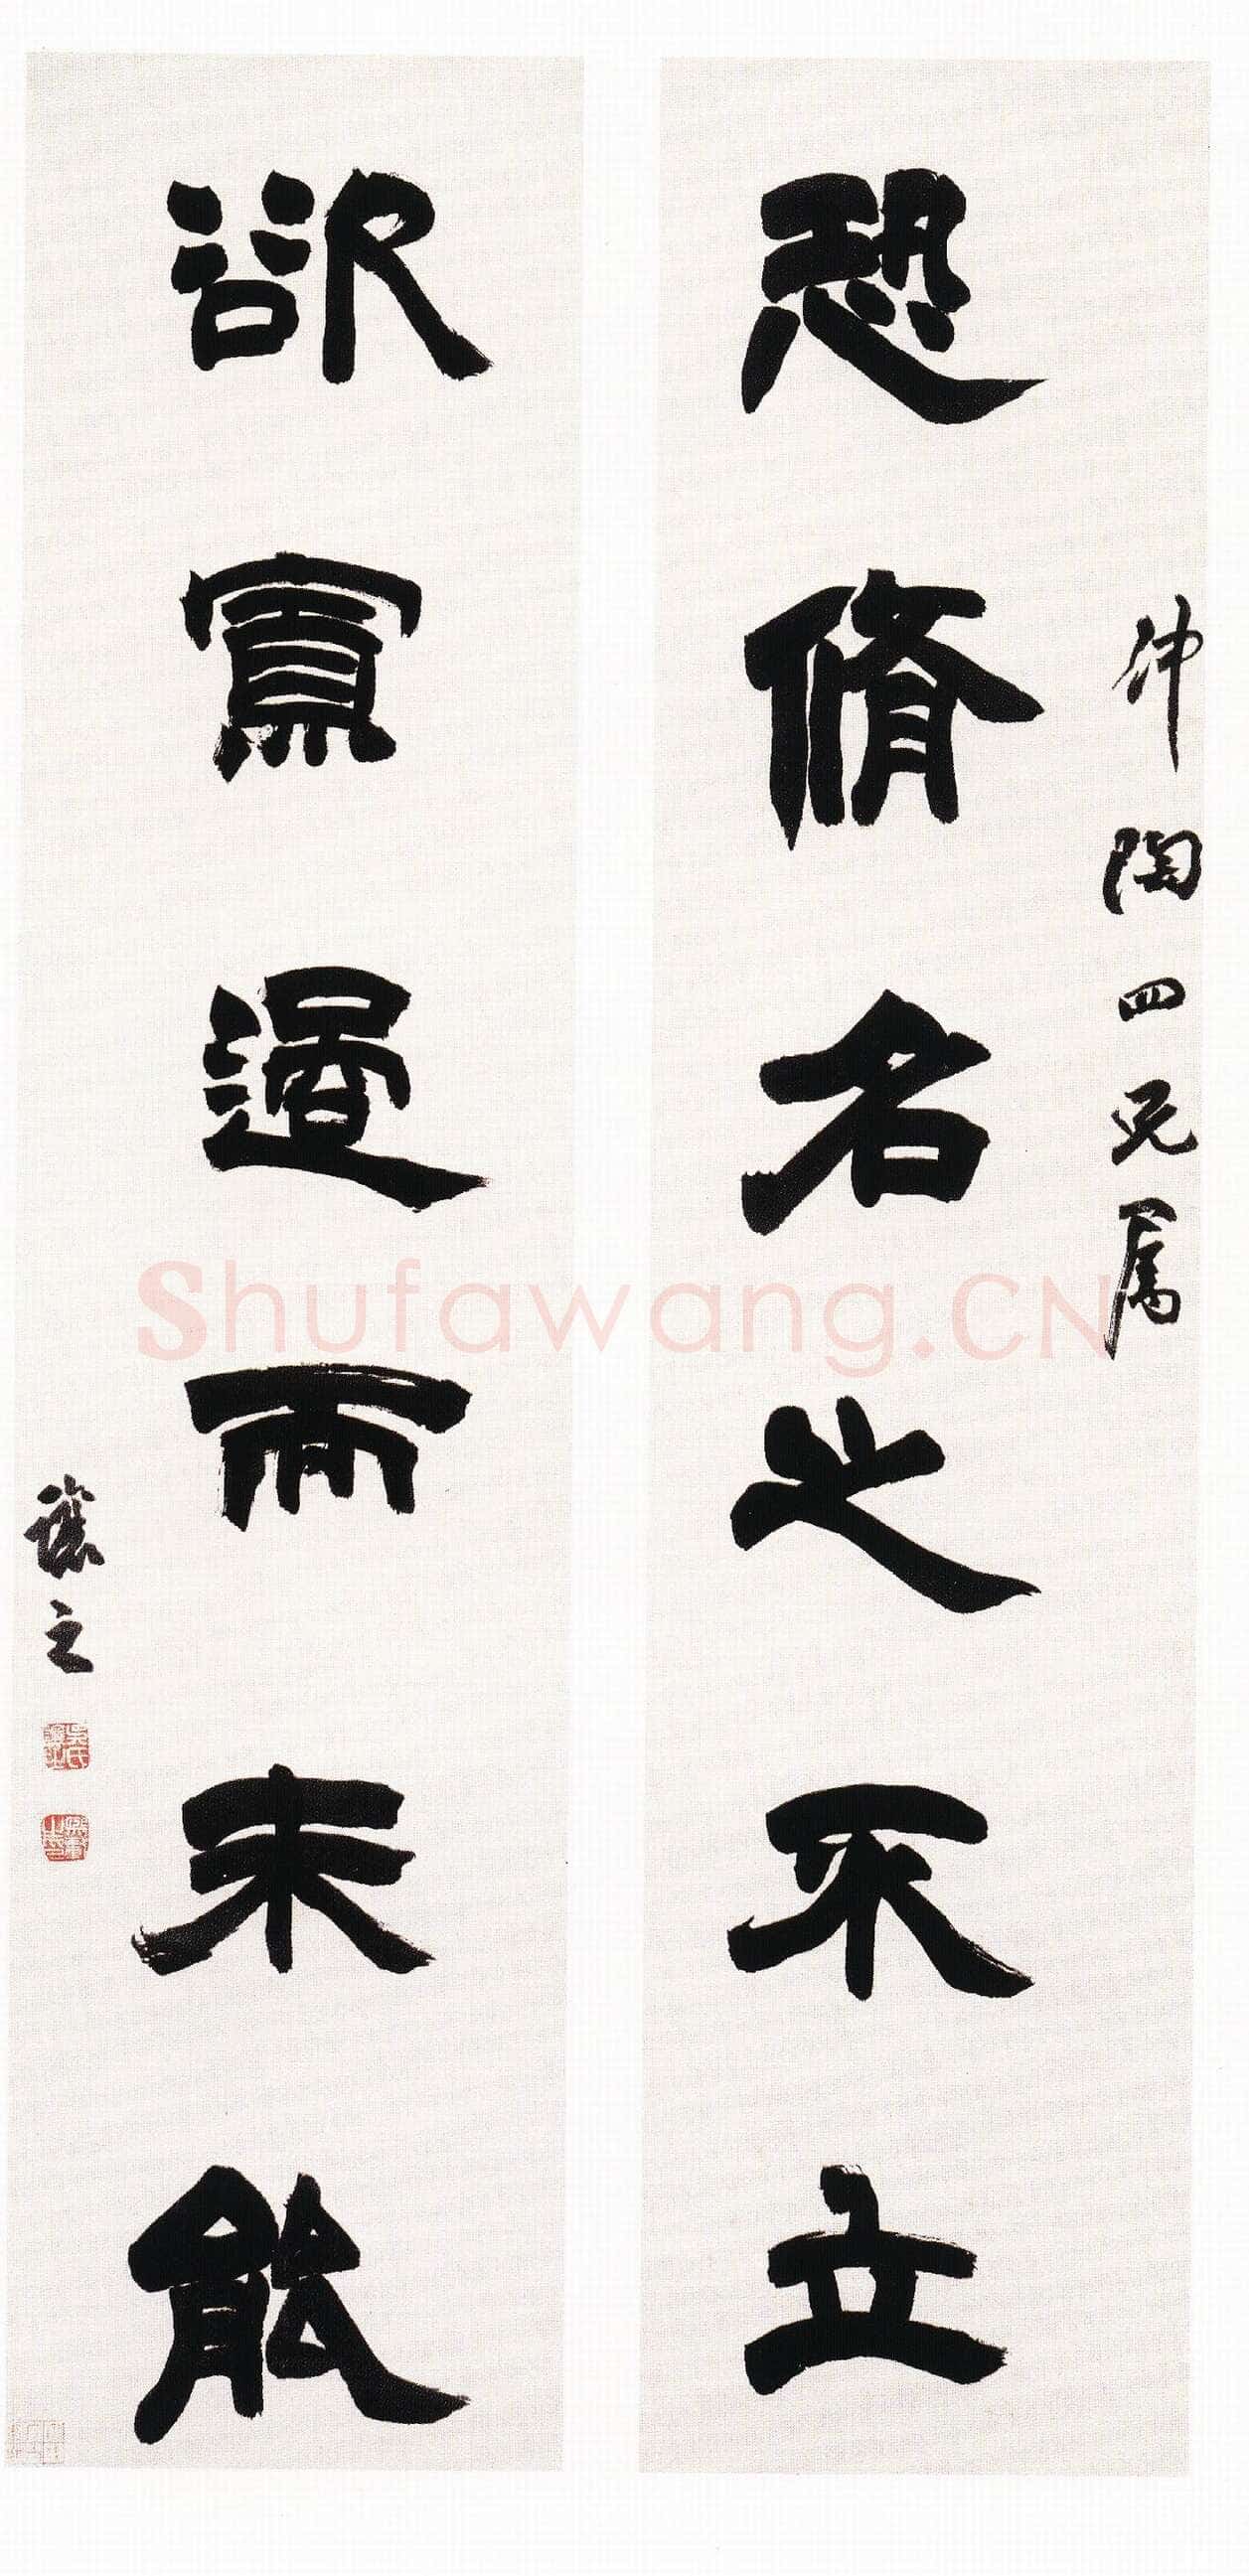 沖陶四兄属
恐脩名之不立
欲寡過而未能
讓之
Shufawang.CN